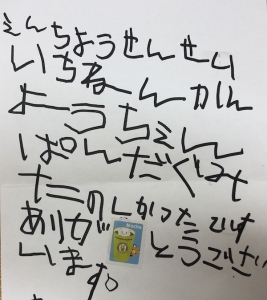 えんちょうせんせい
いちねーんかん
よーちえん
ぱんだぐみ
たのしかったです
ありがとうござい
います。